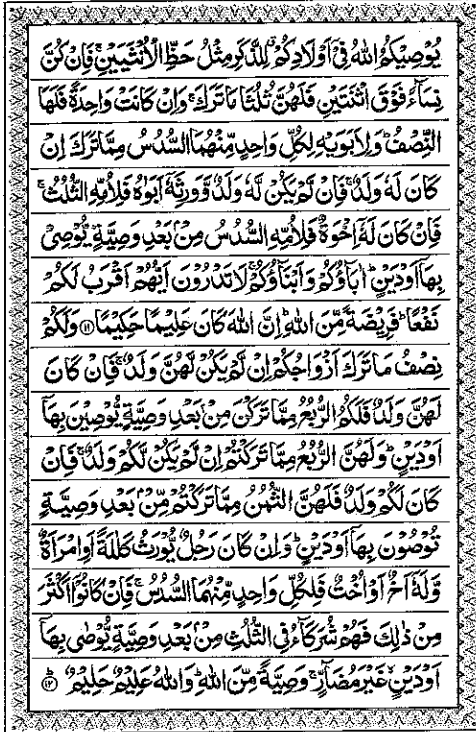 يُوْصِيْكُمُ اللّٰهُ فِيْۤ اَوْلَادِكُمْ ۗ لِلذَّكَرِ مِثْلُ حَظِّ الْاُنْثَيَيْنِ ۚ فَاِنْ كُنَّ
نِسَآءً فَوْقَ اثْنَتَيْنِ فَلَهُنَّ ثُلُثَا مَا تَرَكَ ۚ وَاِنْ كَانَتْ وَاحِدَةً فَلَهَا
النِّصْفُ ؕ وَلِاَبَوَيْهِ لِكُلِّ وَاحِدٍ مِّنْهُمَا السُّدُسُ مِمَّا تَرَكَ اِنْ
كَانَ لَهٗ وَلَدٌ ۚ فَاِنْ لَّمْ يَكُنْ لَّهٗ وَلَدٌ وَّوَرِثَهٗۤ اَبَوٰهُ فَلِاُمِّهِ الثُّلُثُ ۚ
فَاِنْ كَانَ لَهٗۤ اِخْوَةٌ فَلِاُمِّهِ السُّدُسُ مِنْۢ بَعْدِ وَصِيَّةٍ يُّوْصِيْ
بِهَاۤ اَوْ دَيْنٍ ؕ اٰبَآؤُكُمْ وَاَبْنَآؤُكُمْ لَا تَدْرُوْنَ اَيُّهُمْ اَقْرَبُ لَكُمْ
نَفْعًا ؕ فَرِيْضَةً مِّنَ اللّٰهِ ؕ اِنَّ اللّٰهَ كَانَ عَلِيْمًا حَكِيْمًا ﴿۱۱﴾ وَلَكُمْ
نِصْفُ مَا تَرَكَ اَزْوَاجُكُمْ اِنْ لَّمْ يَكُنْ لَّهُنَّ وَلَدٌ ۚ فَاِنْ كَانَ
لَهُنَّ وَلَدٌ فَلَكُمُ الرُّبُعُ مِمَّا تَرَكْنَ مِنْۢ بَعْدِ وَصِيَّةٍ يُّوْصِيْنَ بِهَاۤ
اَوْ دَيْنٍ ؕ وَلَهُنَّ الرُّبُعُ مِمَّا تَرَكْتُمْ اِنْ لَّمْ يَكُنْ لَّكُمْ وَلَدٌ ۚ فَاِنْ
كَانَ لَكُمْ وَلَدٌ فَلَهُنَّ الثُّمُنُ مِمَّا تَرَكْتُمْ مِّنْۢ بَعْدِ وَصِيَّةٍ
تُوْصُوْنَ بِهَاۤ اَوْ دَيْنٍ ؕ وَاِنْ كَانَ رَجُلٌ يُّوْرَثُ كَلٰلَةً اَوِ امْرَاَةٌ
وَّلَهٗۤ اَخٌ اَوْ اُخْتٌ فَلِكُلِّ وَاحِدٍ مِّنْهُمَا السُّدُسُ ۚ فَاِنْ كَانُوْۤا اَكْثَرَ
مِنْ ذٰلِكَ فَهُمْ شُرَكَآءُ فِي الثُّلُثِ مِنْۢ بَعْدِ وَصِيَّةٍ يُّوْصٰى بِهَاۤ
اَوْ دَيْنٍ ۙ غَيْرَ مُضَآرٍّ ۚ وَصِيَّةً مِّنَ اللّٰهِ ؕ وَاللّٰهُ عَلِيْمٌ حَلِيْمٌ ﴿۱۲﴾